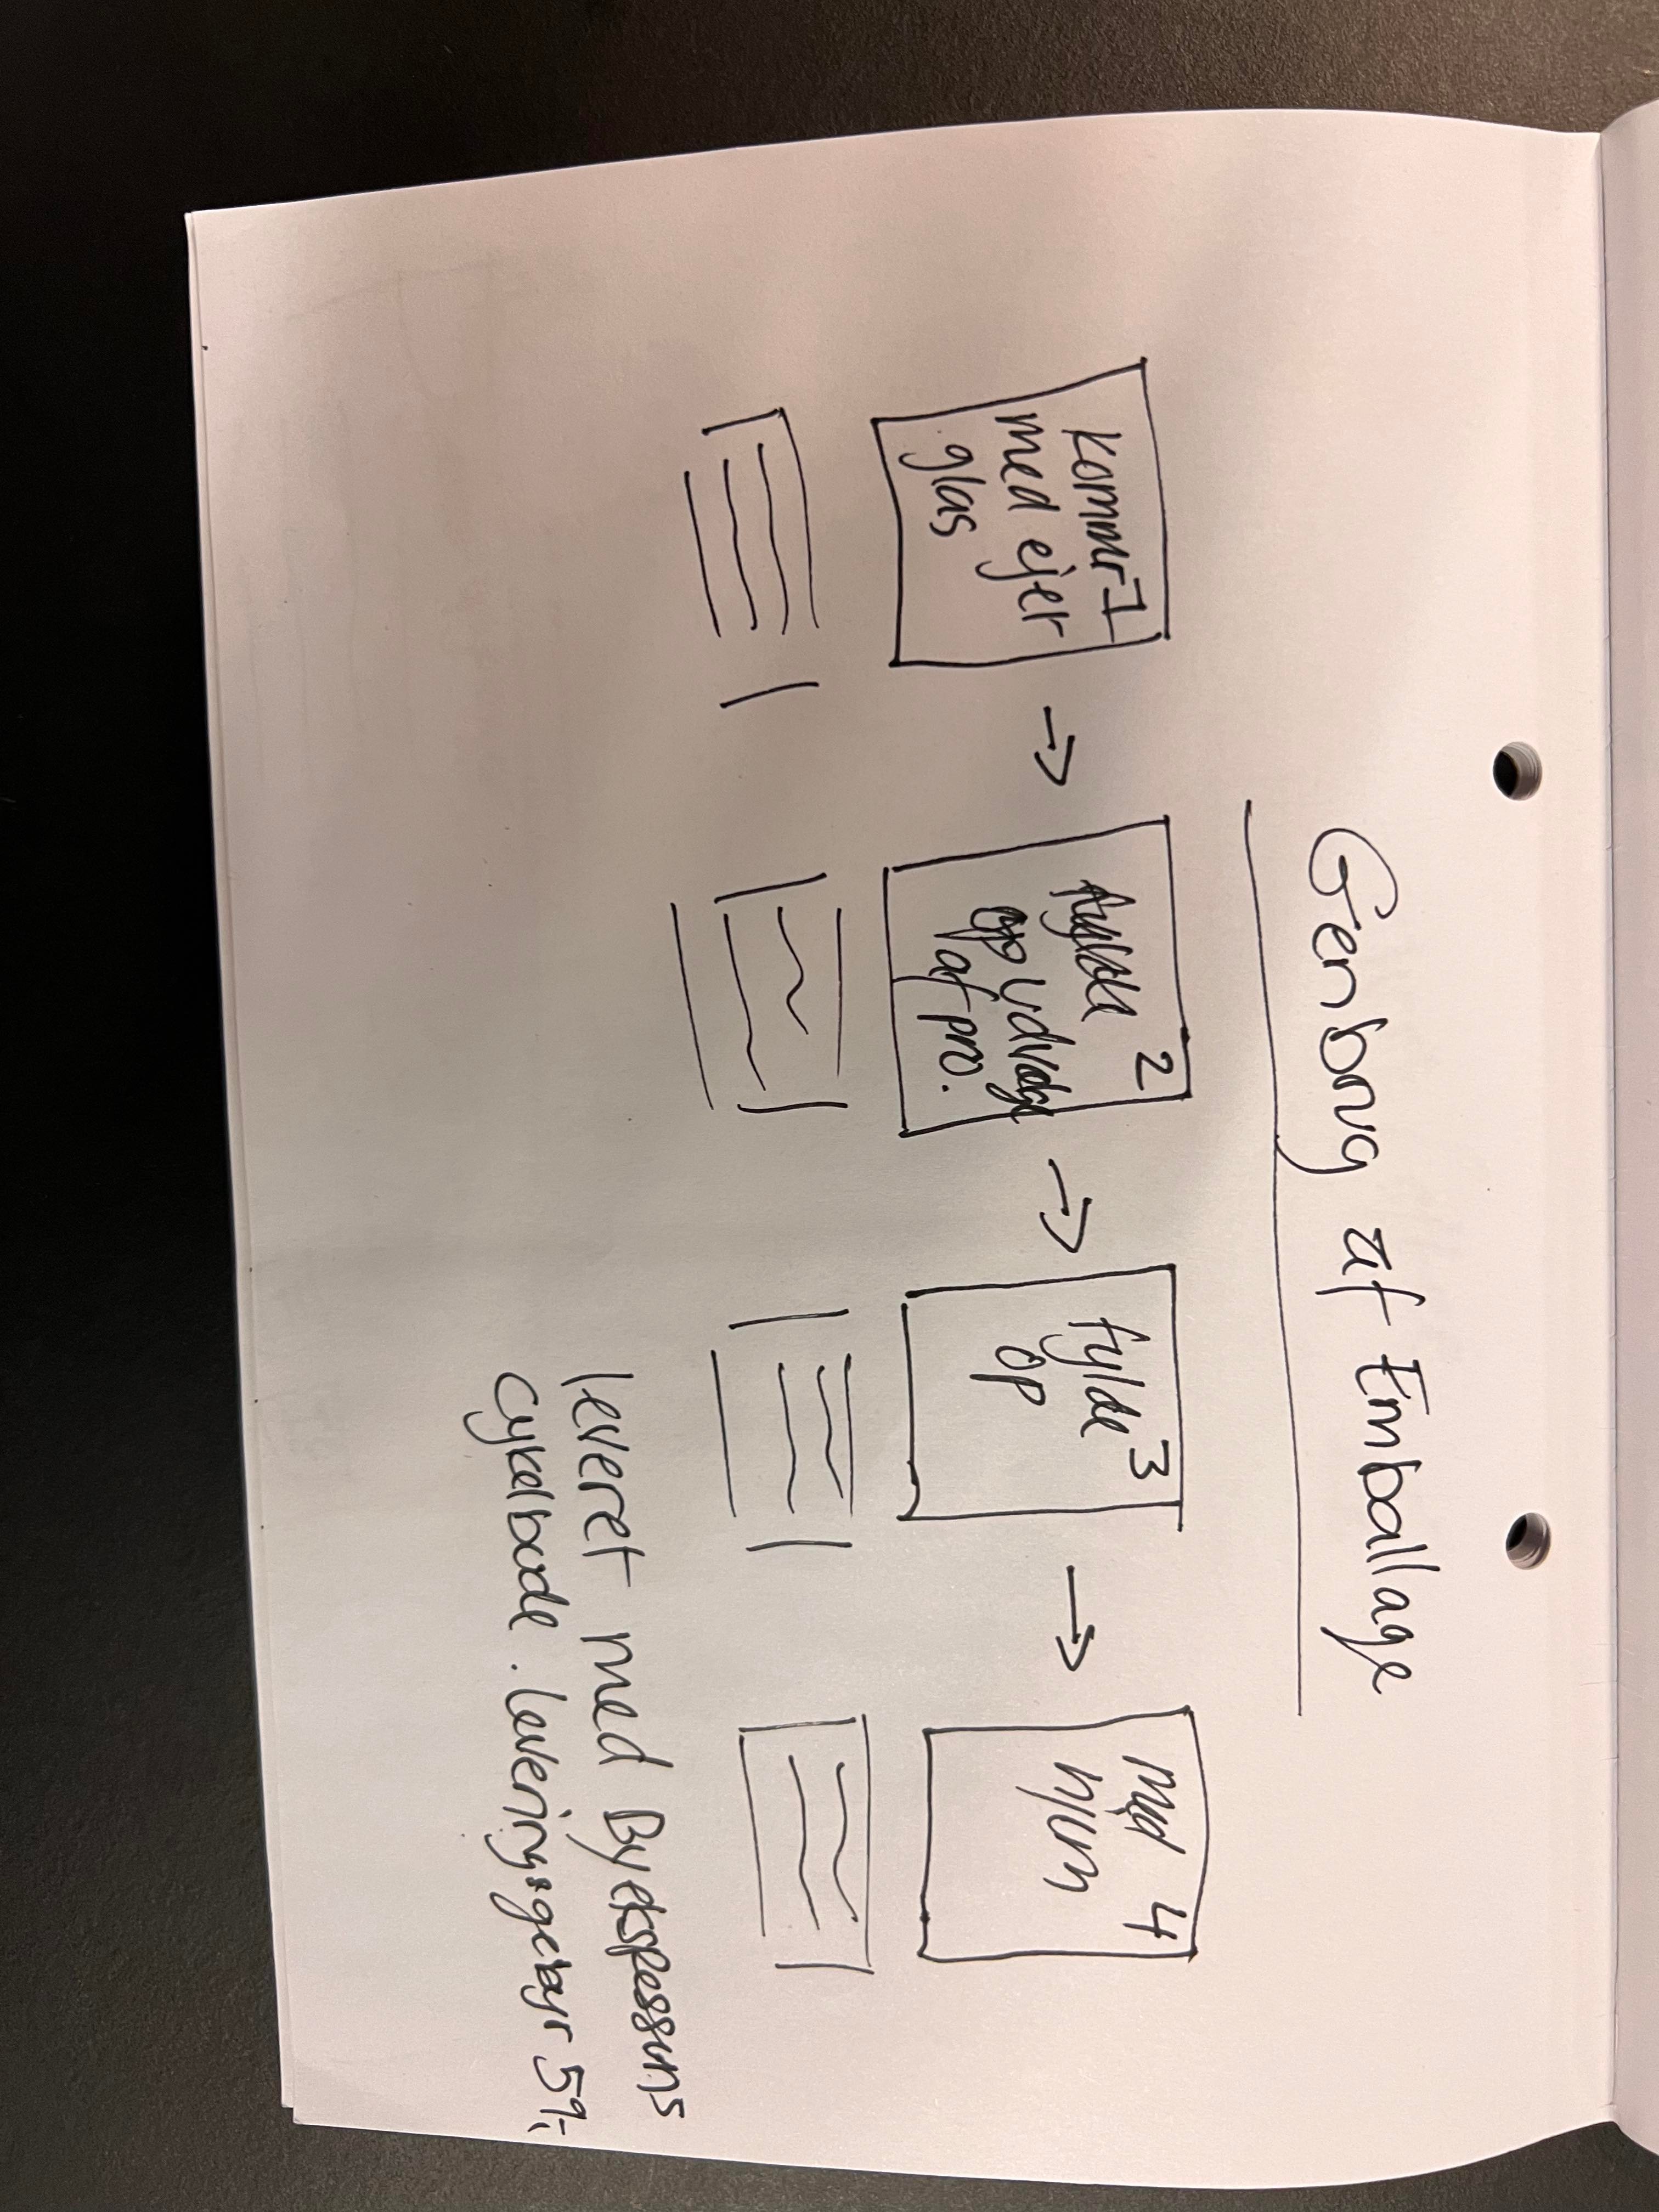 Genbrug af Emballage
1
Kommer
med ejer
glas
→
2
udvælge
af pro.
→
3
fylde
op
→
4
Med
hjem
leveret med Byekspressens
cykelbude. leveringsgebyr 59,-